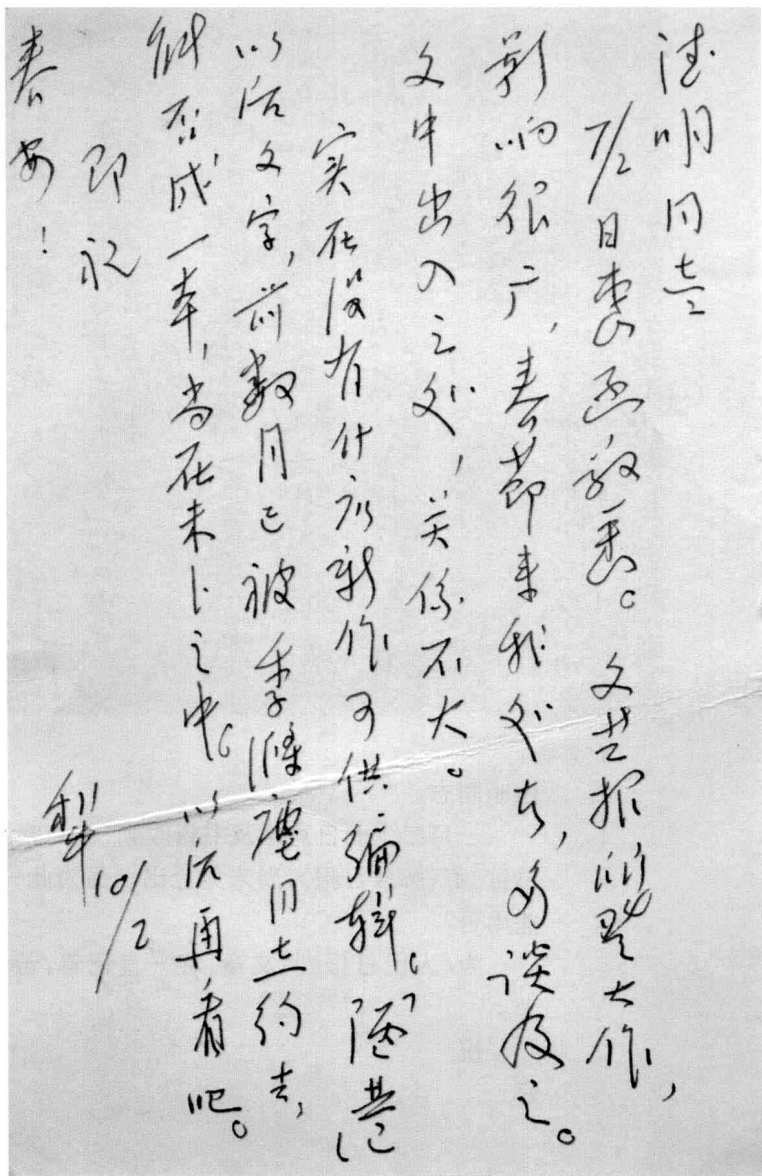 德明同志
7/2日惠函敬悉。文艺报所登大作，
影响很广，春节来我处者，多谈及之。
文中出入之处，关係不大。
实在没有什么新作可供编辑。陋巷
以后文字，前数月已被季滌塵同志约去，
能否成一本，尚在未卜之中。以后再看吧。
即祝
春安！
犁 10/2